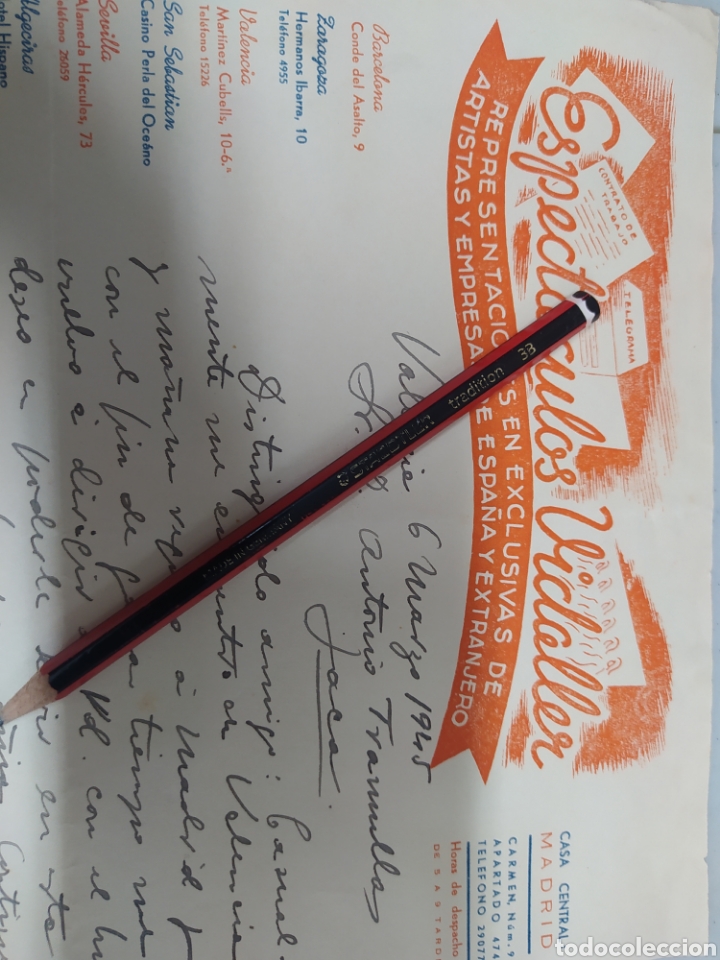 Espectáculos Vidaller
CONTRATO DE TRABAJO
TELEGRAMA
REPRESENTACIONES EN EXCLUSIVAS DE
ARTISTAS Y EMPRESAS DE ESPAÑA Y EXTRANJERO
CASA CENTRAL
MADRID
CARMEN, Núm. 9
APARTADO 474
TELEFONO 29077
Horas de despacho
DE 5 A 9 TARDE
Barcelona
Conde del Asalto, 9
Zaragoza
Hermanos Ibarra, 10
Teléfono 4955
Valencia
Martínez Cubells, 10-6.ª
Teléfono 15226
San Sebastian
Casino Perla del Océano
Sevilla
Alameda Hércules, 73
Teléfono 26059
Algeciras
Hotel Hispano
6 Marzo 1945
Sr. D. Antonio Tramullas
Jaca.
amigo: Casual-
mente me encuentro en Valencia
y mañana regreso á Madrid y
con el fin de tiempo me
vuelvo á dirigir á Vd. con el
deseo en esta
tradition 3B
todocoleccion